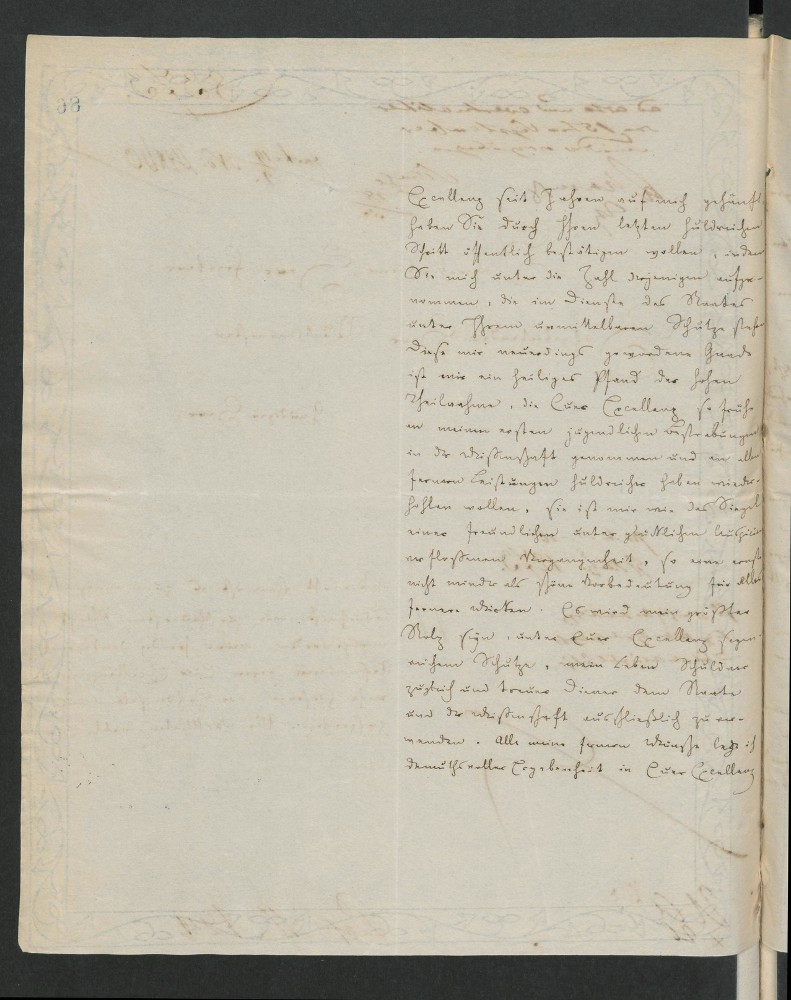 Excellenz seit Jahren auf mich gehäuft
haben Sie durch Ihren letzten huldreichen
Schritt öffentlich bestätigen wollen, indem
Sie mich unter die Zahl derjenigen aufge-
nommen, die im Dienste des Staates
unter Ihrem unmittelbaren Schutze stehen
Diese mir neuerdings gewordene Gnade
ist mir ein heiliges Pfand der hohen
Theilnahme, die Euer Excellenz so früh
an meinen ersten jugendlichen Bestrebungen
in der Wissenschaft genommen und an allen
fernern Leistungen huldreichst haben wieder-
hohlen wollen, sie ist mir wie das Siegel
einer freundlichen unter glücklichen Auspicien
verflossenen Vergangenheit, so eine ernste
nicht minder als schöne Vorbedeutung für alles
fernere Wirken. Es wird mein größter
Stolz seyn, unter Euer Excellenz segen-
reichem Schutze, mein Leben Schuldner
zugleich und treuer Diener dem Staate
und der Wissenschaft ausschließlich zu ver-
wenden. Alle meine fernern Wünsche lege ich
demuthsvoller Ergebenheit in Euer Excellenz